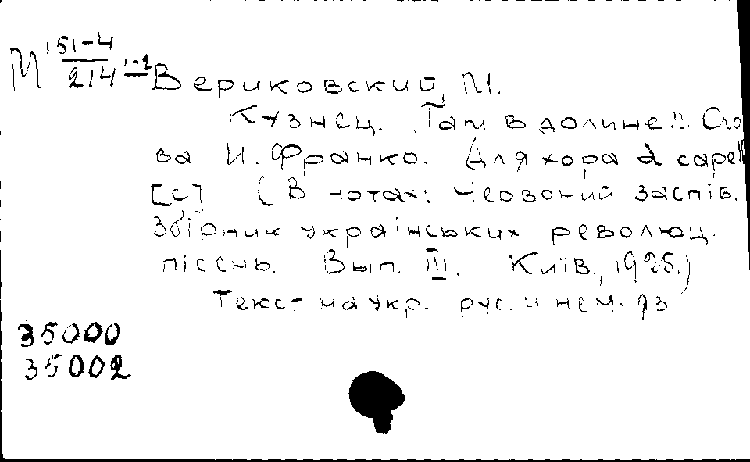 М 151-4/214 1-2 Вериковский, М.
Кузнец. "Там в долине". Сло
ва И. Франко. Для хора a capell
[c] (В нотах: Червоний заспів.
Збірник українських революц.
пісень. Вып. III. Київ, 1925.)
Текст на укр. рус. и нем. яз
35000
35002